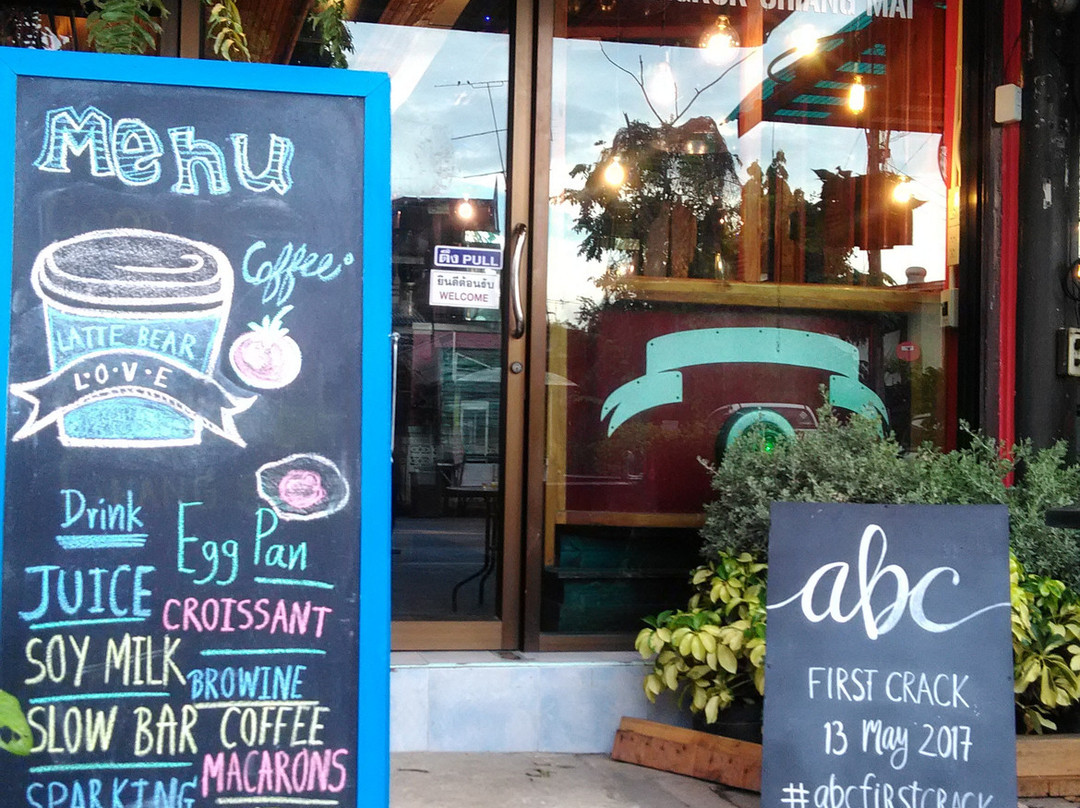 CHIANG MAI
Menu
Coffee
LATTE BEAR
L·O·V·E
Drink
Egg Pan
JUICE
CROISSANT
SOY MILK
BROWINE
SLOW BAR COFFEE
MACARONS
SPARKING
ดึง PULL
ยินดีต้อนรับ
WELCOME
abc
FIRST CRACK
13 May 2017
#abcfirstcrack